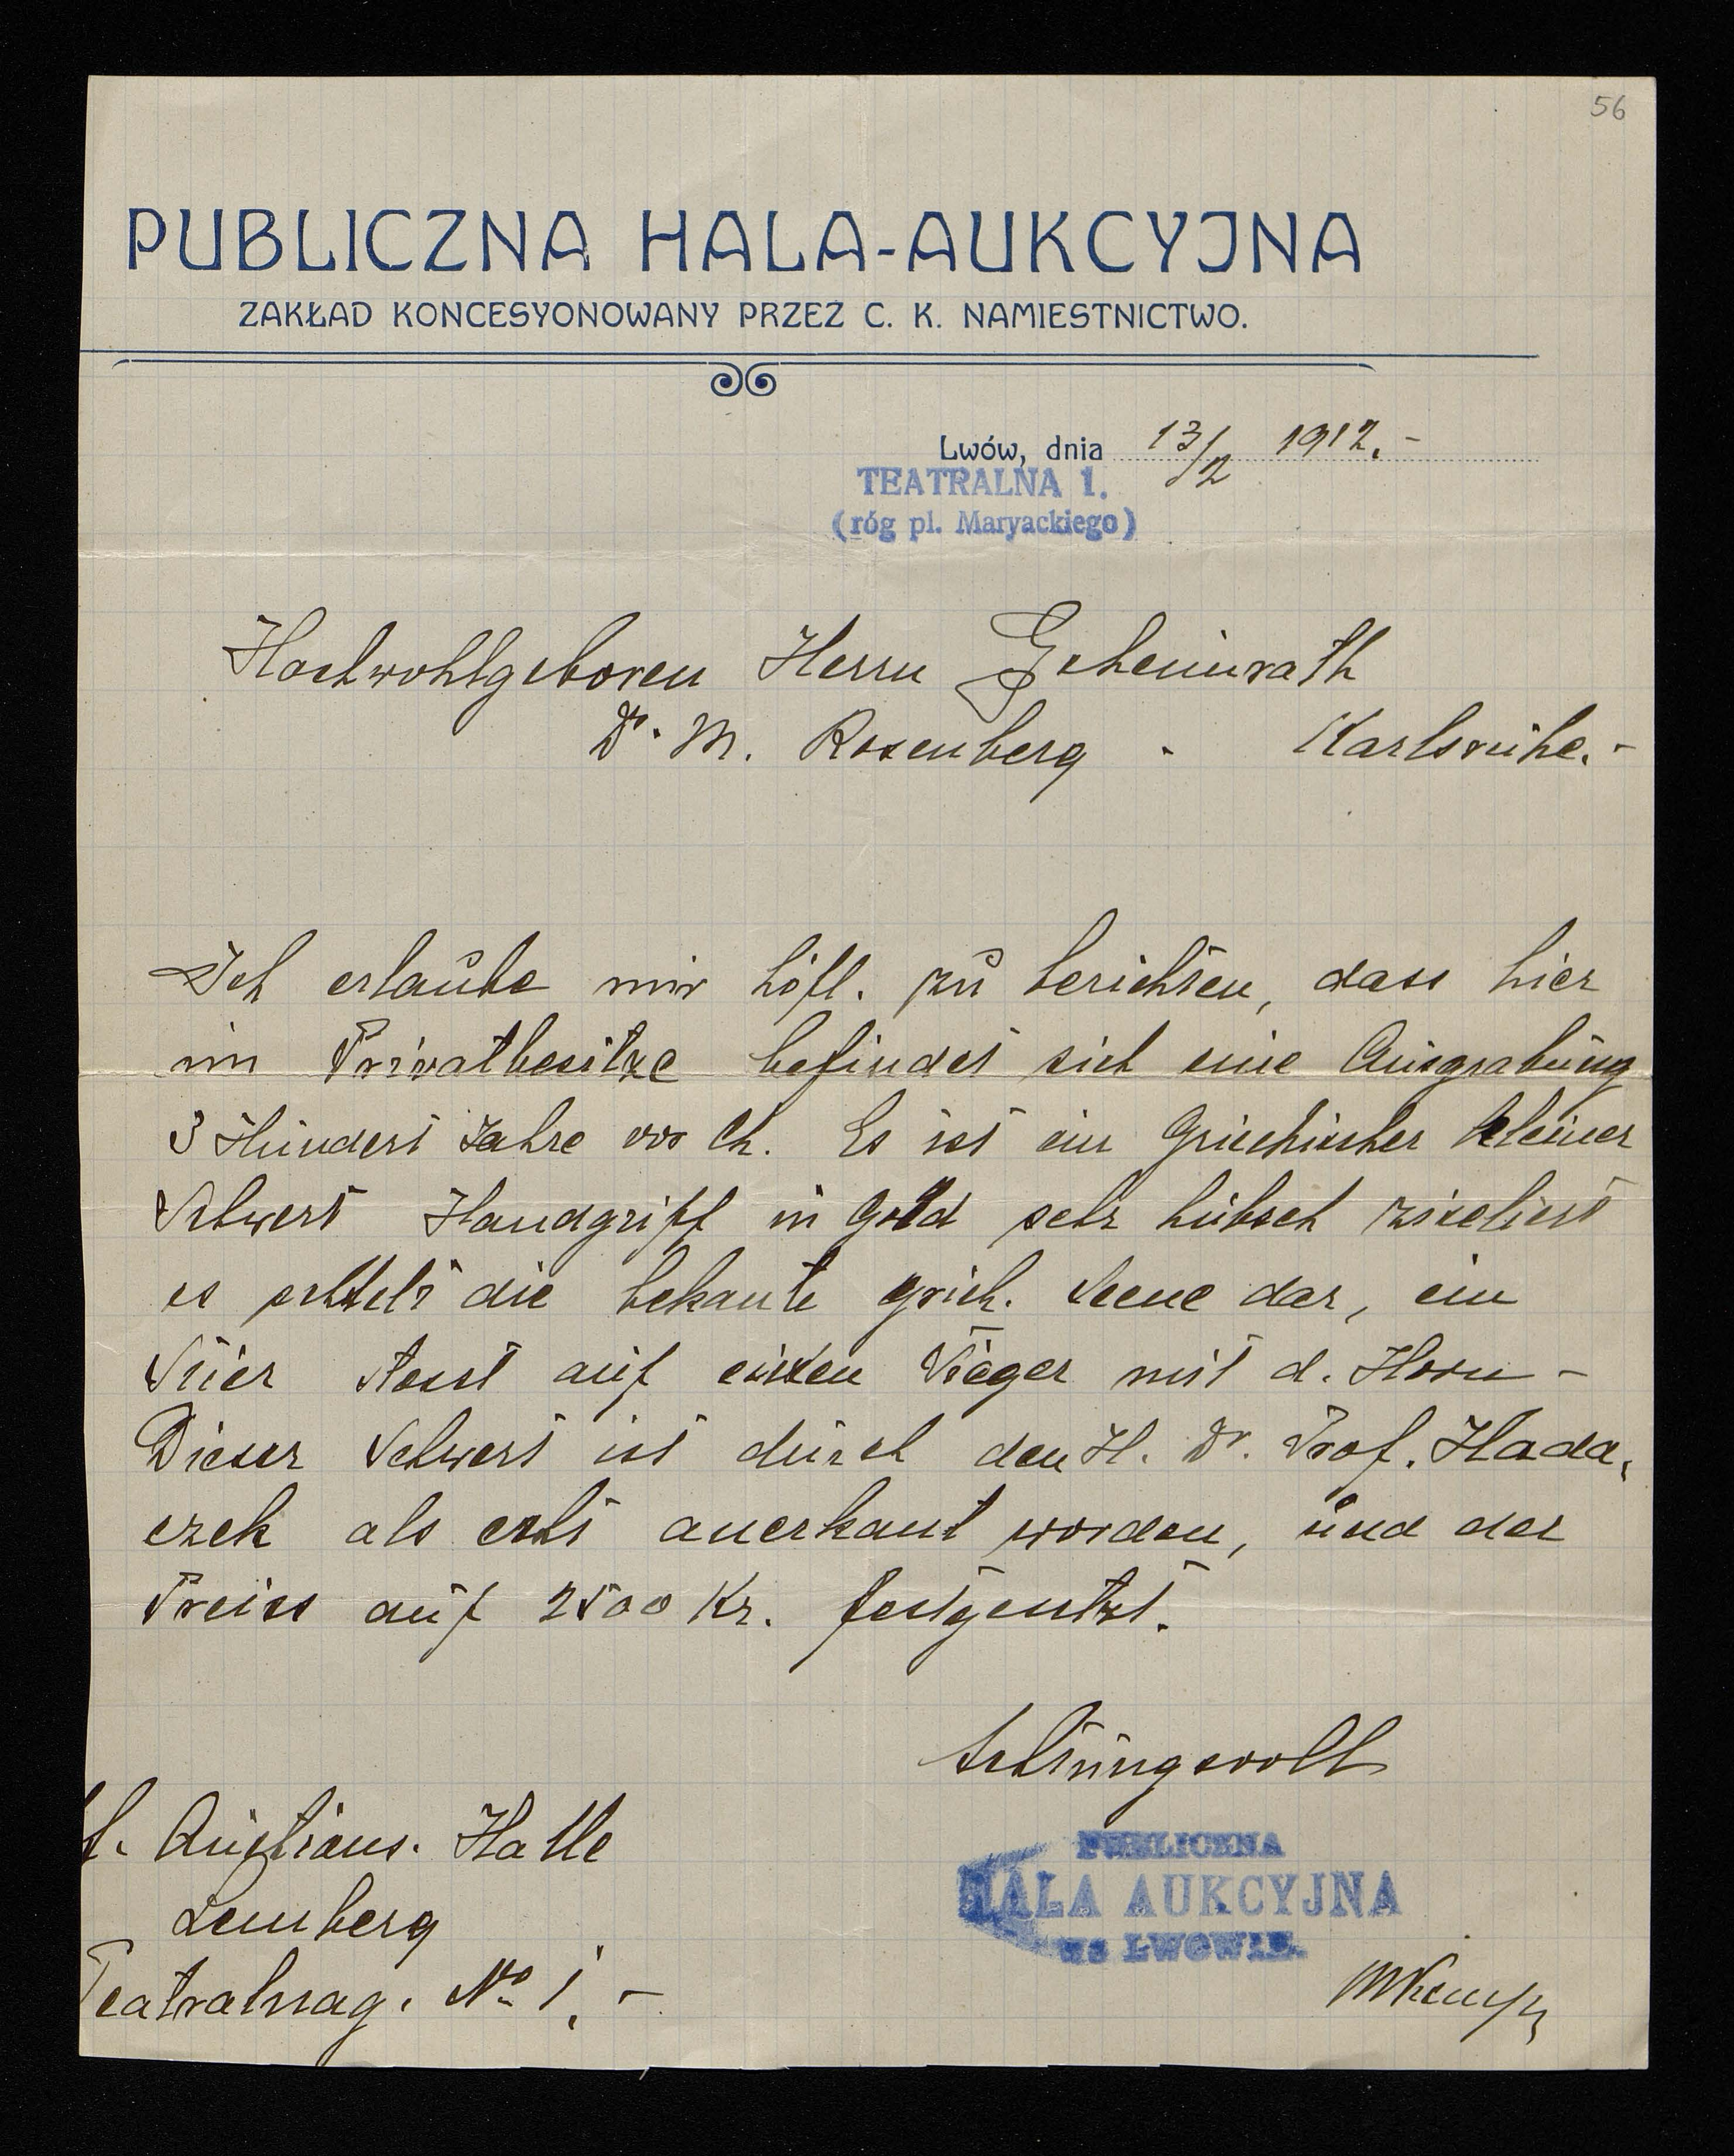 56
PUBLICZNA HALA-AUKCYJNA
ZAKŁAD KONCESYONOWANY PRZEZ C. K. NAMIESTNICTWO.
Lwów, dnia 13/2 1912.-
TEATRALNA 1.
(róg pl. Maryackiego)
Hochwohlgeboren Herrn Geheimrath
Dr. M. Rosenberg - Karlsruhe.-
Ich erlaube mir höfl. zu berichten, dass hier
im Privatbesitze befindet sich eine Ausgrabung
3 Hundert Jahre vor Ch. Es ist ein Griechischer kleiner
Schwert Handgriff in Gold sehr hübsch ziseliert
es schtelt die bekante grich. Scene dar, ein
Stier stosst auf einen Tieger mit d. Horn -
Dieser Schwert ist durch den H. Dr. Prof. Hada,
czek als echt anerkant worden, und der
Preiss auf 2500 Kr. festgesetzt.
Achtungsvoll
f. Auctions. Halle
Lemberg
Teatralnag. No 1. -
PUBLICZNA
HALA AUKCYJNA
WE LWOWIE.